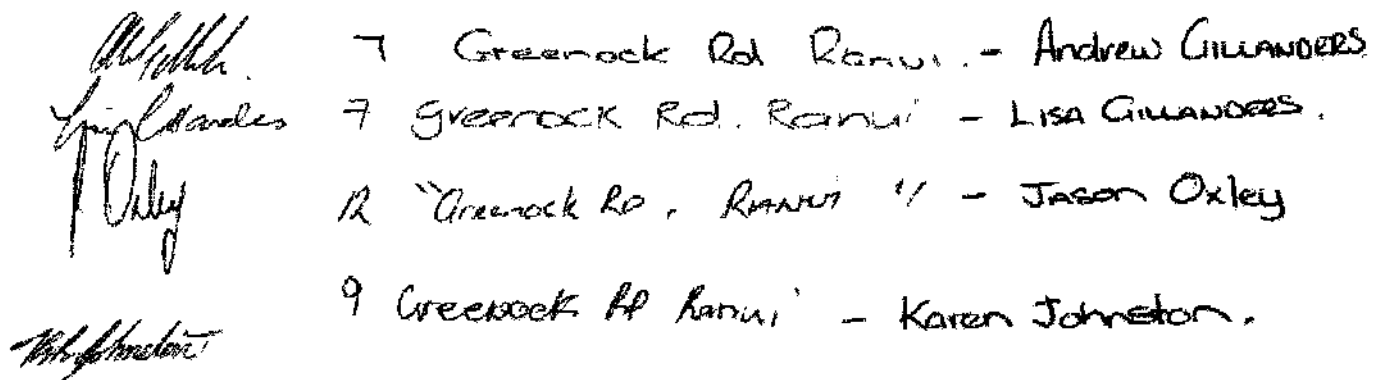 7 Greenock Rd Ranui. - Andrew GILLANDERS
7 Greenock Rd. Ranui - LISA GILLANDERS.
Oxley 12 "Greenock RD, RANUI " - JASON Oxley
9 Greenock RD Ranui - Karen Johnston.
Johnston